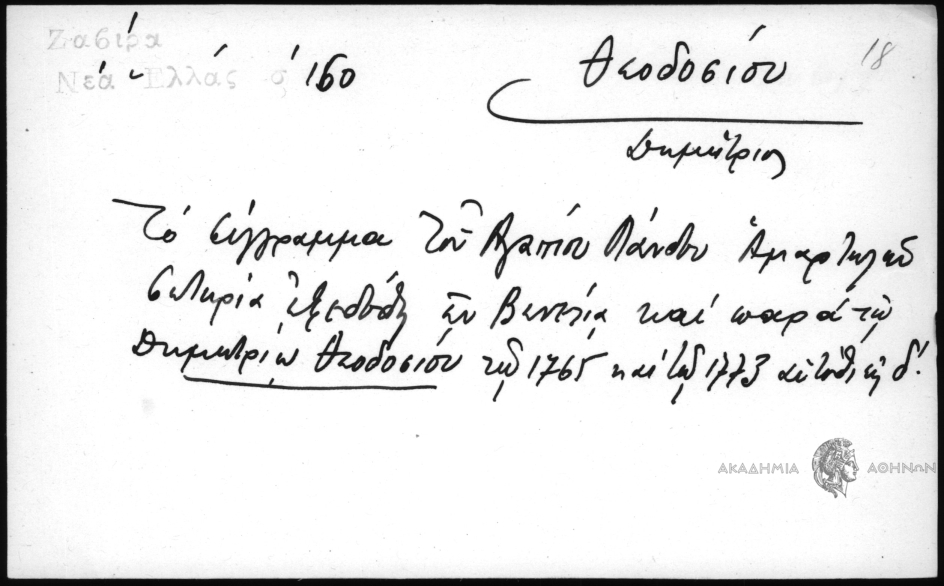 Ζαβίρα
Νέα Ἑλλάς σ 160
Θεοδοσίου
18
Δημήτριος
Τό σύγγραμμα τοῦ Ἀγαπίου Λάνδου Ἁμαρτωλῶν
Σωτηρία ἐξεδόθη ἐν Βενετία καί παρά τῷ
Δημητρίῳ Θεοδοσίου τῷ 1765 καί τῷ 1773
ΑΚΑΔΗΜΙΑ ΑΘΗΝΩΝ